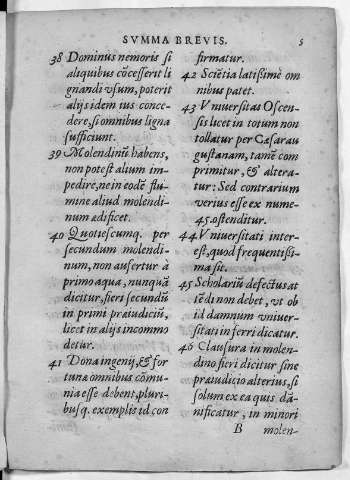 SVMMA BREVIS. 5
38 Dominus nemoris si
aliquibus cõcesserit li
gnandi vsum, poterit
alijs idem ius conce-
dere, si omnibus ligna
sufficiunt.
39 Molendinũ habens,
non potest alium im-
pedire, ne in eodẽ flu-
mine aliud molendi-
num ædificet.
40 Quotiescumq. per
secundum molendi-
num, non aufertur à
primo aqua, nunquã
dicitur, fieri secundũ
in primi præiudiciũ,
licet in alijs incommo
detur.
41 Dona ingenij, & for
tunæ omnibus cõmu-
nia esse debent, pluri-
busq. exemplis id con
firmatur.
42 Sciẽtia latissimè om
nibus patet.
43 Vniuersitas Oscen-
sis licet in totum non
tollatur per Cæsarau
gustanam, tamẽ com
primitur, & altera-
tur: Sed contrarium
verius esse ex nume-
45. ostenditur.
44 Vniuersitati inter-
est, quod frequentissi-
ma sit.
45 Scholariũ defectus at
tẽdi non debet, vt ob
id damnum vniuer-
sitati inferri dicatur.
46 Clausura in molen-
dino fieri dicitur sine
præiudicio alterius, si
solum ex ea quis dã-
nificatur, in minori
B molen-